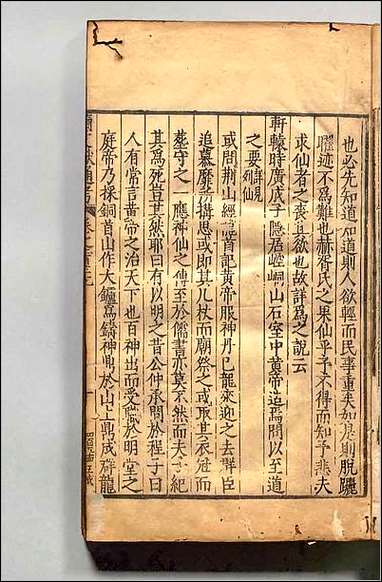 也必先知道知道則人欲輕而民事重矣如是則脫屣
躧迹不為難也赫胥氏之果仙乎予不得而知予悲夫
求仙者之喪真欲也故詳為之說云
軒轅時廣成子隱居崆峒山石室中黃帝造焉問以至道
之要詳見
或問荆山經
首記黃帝服神丹巳龍來迎之去群臣
追慕靡所措思或即其几杖而廟祭之或取其衣冠而
墓守之
應神仙之傳至於儒書亦莫不然而天
紀
其為死豈其然耶曰有以明之昔公仲承問於程子曰
人有常言黃帝之治天下也百神出而受職於明堂之
庭帝乃採銅首山作大鑪焉鑄神鼎於山上鼎成群龍